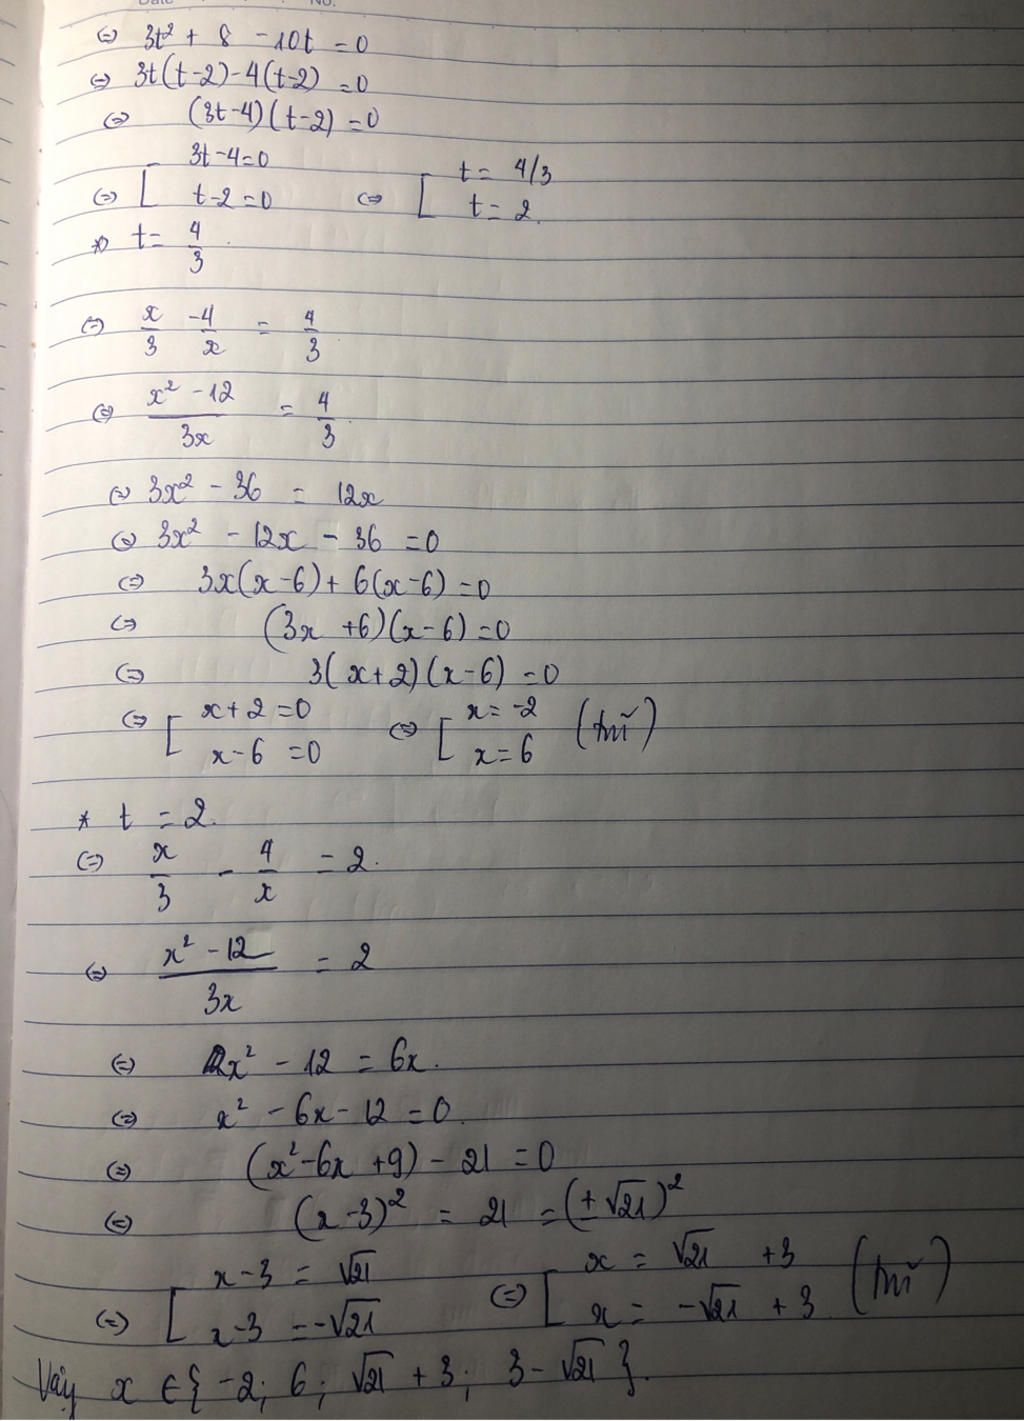 Date No.
(=) 3t² + 8 - 10t = 0
(=) 3t(t-2) - 4(t-2) = 0
(=) (3t-4)(t-2) = 0
(=) [ 3t-4=0 (=) [ t = 4/3
t-2=0 t = 2.
* t = 4/3.
(=) x/3 -4/x = 4/3
(=) (x² - 12)/3x = 4/3.
(=) 3x² - 36 = 12x
(=) 3x² - 12x - 36 = 0
(=) 3x(x-6) + 6(x-6) = 0
(=) (3x + 6)(x-6) = 0
(=) 3(x+2)(x-6) = 0
(=) [ x+2=0 (=) [ x = -2 (tm)
x-6=0 x = 6
* t = 2.
(=) x/3 - 4/x = 2.
(=) (x² - 12)/3x = 2
(=) x² - 12 = 6x.
(=) x² - 6x - 12 = 0.
(=) (x² - 6x + 9) - 21 = 0
(=) (x-3)² = 21 = (±√21)²
(=) [ x-3 = √21 (=) [ x = √21 + 3 (tm)
x-3 = -√21 x = -√21 + 3
Vậy x ∈ { -2; 6; √21 + 3; 3 - √21 }.